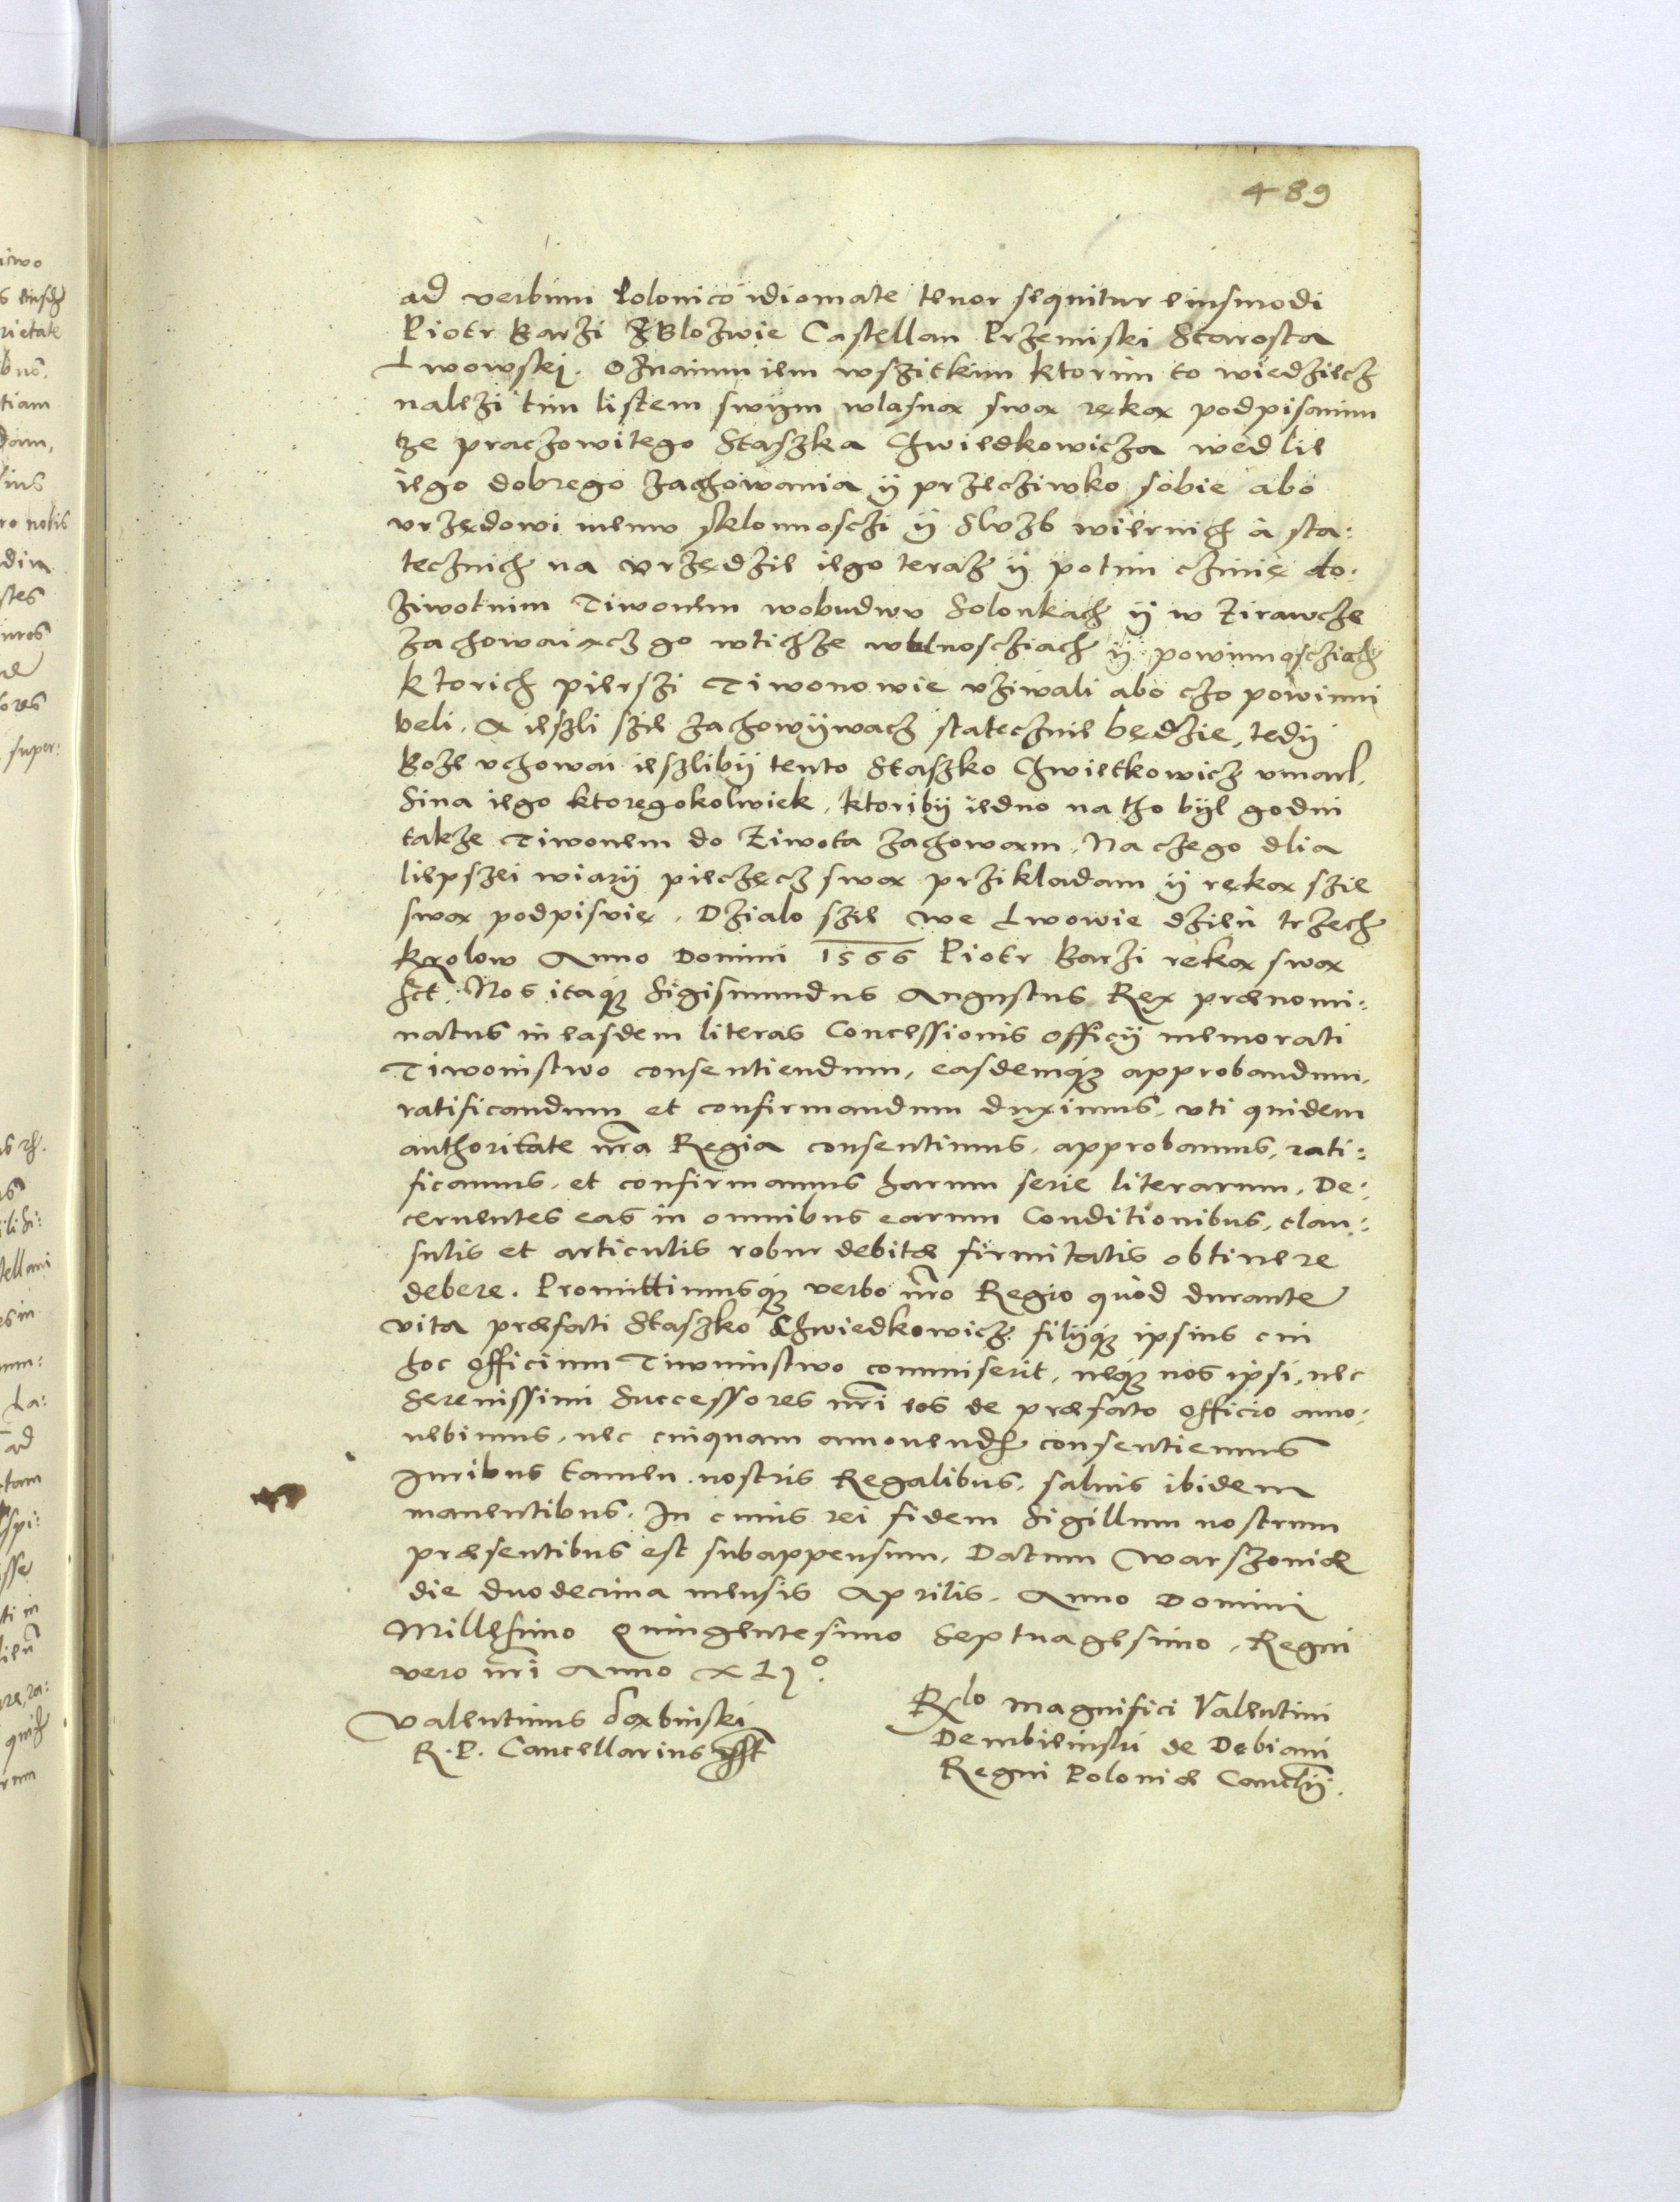 489
ad verbum Polonico idiomate tenor sequitur eiusmodi
Piotr Barzi z Blozwie Castellan Przemiski Starosta
Lwowski. Oznaimuiem wszitkim ktorim to wiedziecz
nalezi tim listem swym wlasną swą ręką podpisanim
ze praczowitego Staszka Chwiedkowicza wedlie
iego dobrego zachowania ÿ przecziwko sobie abo
vrzędowi memv sklonnoschi ÿ Slvzb wiernich a sta:
tecznich na vrzędzie iego teraz ÿ potim czinię do:
ziwotnim Tiwonem wobudwu Solonkach ÿ w Zirawcze
zachowaiącz go wtichze wolnoscziach ÿ powinnoscziach
ktorich pierszi Tiwonowie vziwali abo czo powinni
beli. A ieszli szie zachowÿwacz statecznie będzie, tedÿ
Boze vchowai ieszlibÿ tento Staszko Chwietkowicz vmarl.
Sina iego ktoregokolwiek, ktoribÿ iedno na tho bÿl godni
takze Tiwonem do Ziwota zachowam. Na czego dlia
liepszei wiarÿ pieczęcz swą przikladam ÿ ręką szie
swą podpisvię. Dzialo szie we Lwowie dzien trzech
krolow Anno Domini 1566 Piotr Barzi reką swą
sst. Nos itaque Sigismundus Augustus Rex prænomi:
natus in easdem literas Concessionis officÿ memorati
Tiwonistwo consentiendum, easdemque approbandum,
ratificandum et confirmandum duximus, vti quidem
authoritate nra Regia consentimus, approbamus, rati:
ficamus, et confirmamus harum serie literarum. De:
cernentes eas in omnibus earum Conditionibus, clau:
sulis et articulis robur debitæ firmitatis obtinere
debere. Promittimusque verbo nro Regio quòd durante
vita præfati Staszko Chwiedkowicz filÿque ipsius cui
hoc officium Tiwunistwo commiserit, neque nos ipsi, nec
Serenissimi Successores nri eos de præfato officio amo:
uebimus, nec cuiquam amouendum consentiemus
Iuribus tamen nostris Regalibus, saluis ibidem
manentibus. In cuius rei fidem Sigillum nostrum
præsentibus est subappensum. Datum Warszouiæ
die duodecima mensis Aprilis. Anno Domini
Millesimo Quingentesimo Septuagesimo, Regni
vero nri Anno XLIo.
Valentinus Dąbinski
R. P. Cancellarius sst
Rlo magnifici Valentini
Dembieinski de Debiani
Regni Poloniæ Cancellÿ.